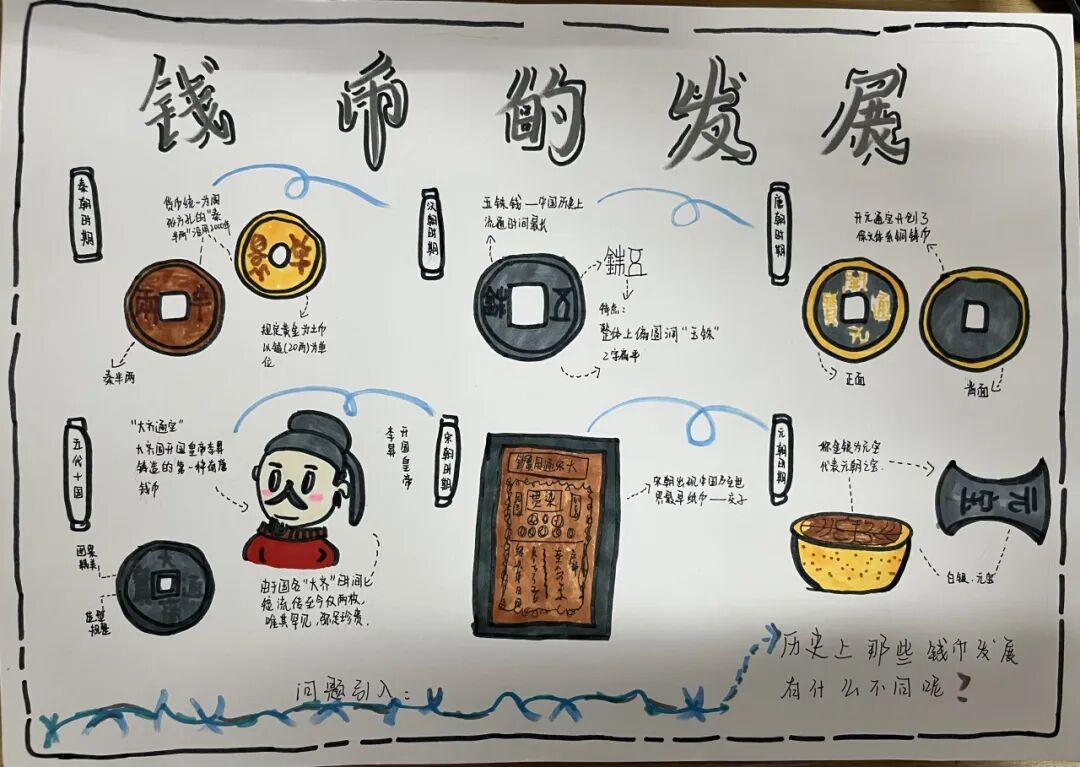 钱币的发展
秦朝时期
货币统一为圆
形方孔的“秦
半两”沿用2000年
半两
规定黄金为上币
以镒(20两)为单
位
秦半两
汉朝时期
五铢钱—中国历史上
流通时间最长
五铢
特点：
整体上偏圆润“五铢”
2字扁平
唐朝时期
开元通宝开创了
通
元
正面
背面
五代十国
“大齐通宝”
大齐国开国皇帝李昪
铸造的第一种南唐
钱币
开国皇帝
李昪
精美
规整
由于国名“大齐”时间匕
较流传至今仅两枚,
唯其罕见,弥足珍贵.
宋朝时期
宋朝出现中国乃至世
界最早纸币——交子
元朝时期
称金银为元宝
代表元朝之宝.
元宝
白银.元宝
问题引入：
历史上那些钱币发展
有什么不同呢?